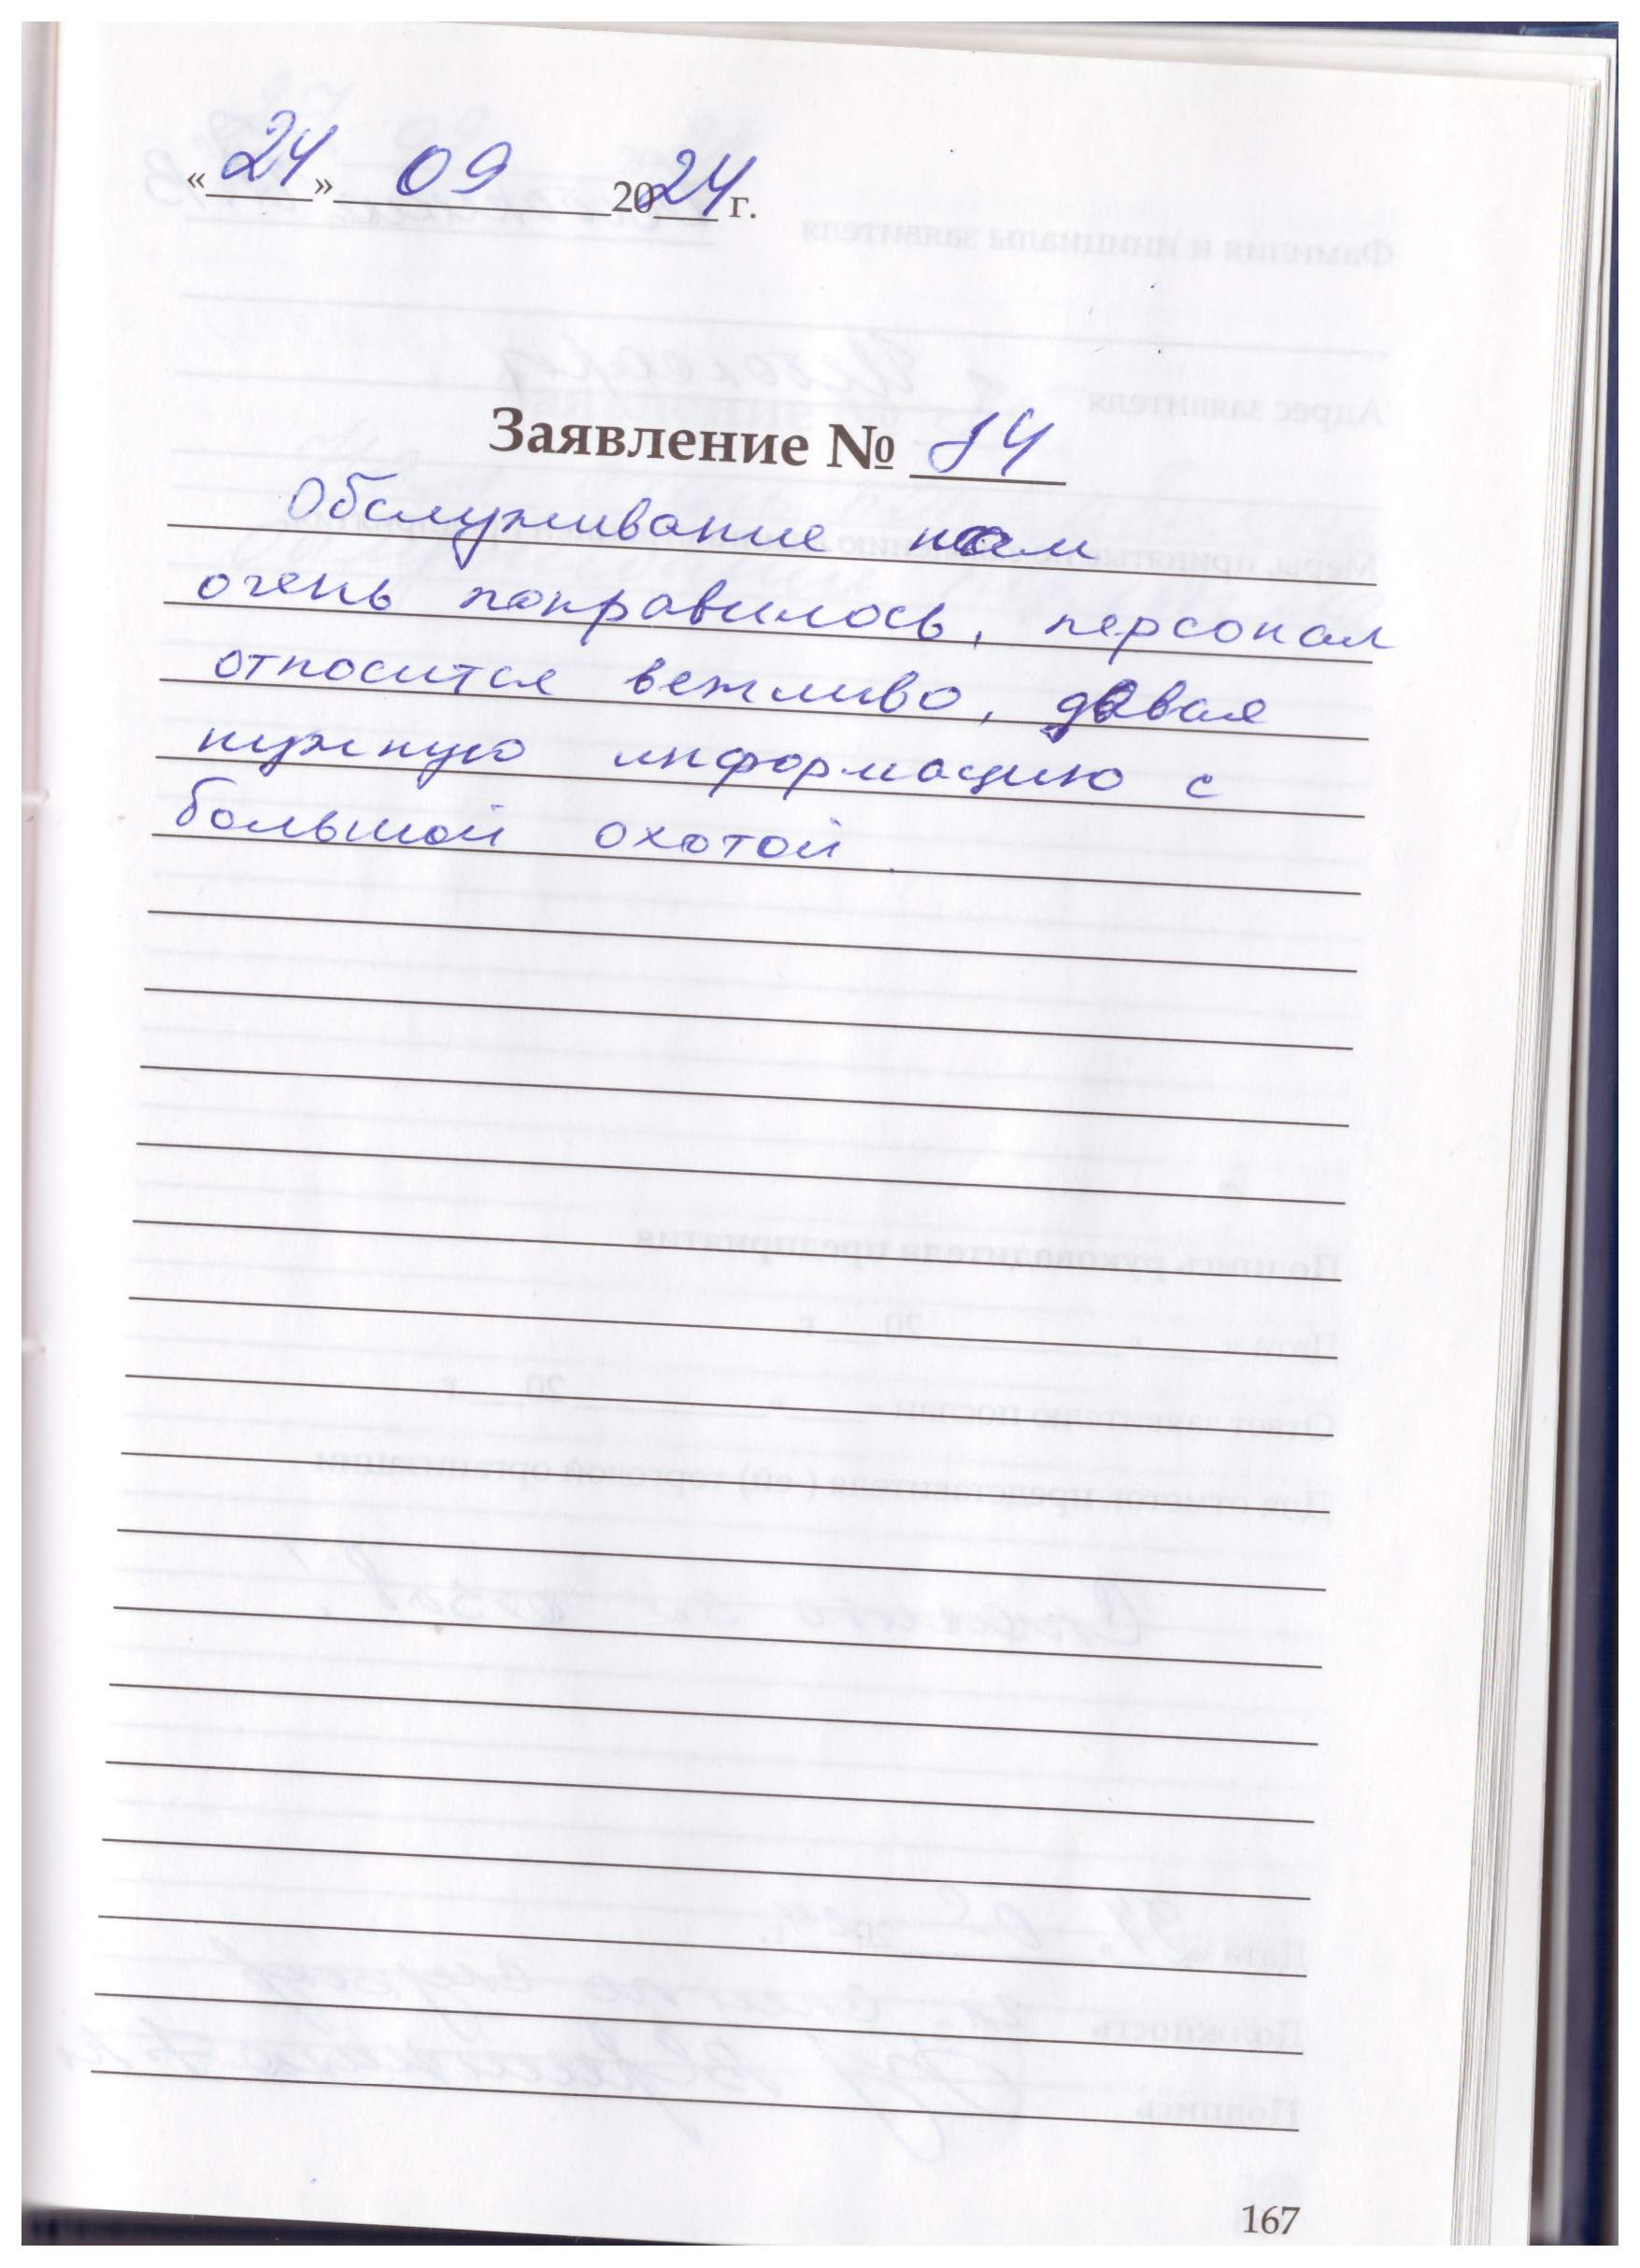 «24» 09 2024 г.
Заявление № 14
Обслуживание нам
очень понравилось, персонал
относится вежливо, давая
нужную информацию с
большой охотой.
167